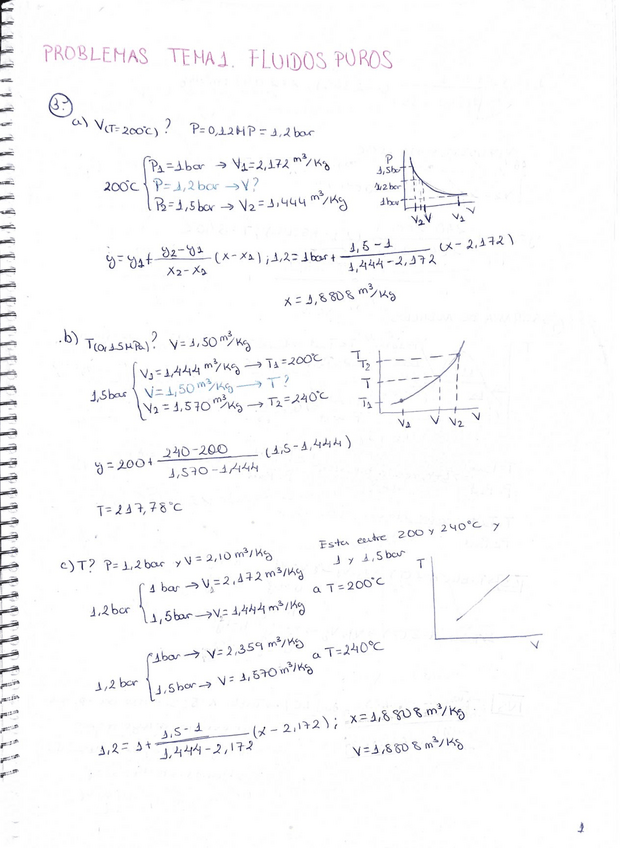 PROBLEMAS TEMA1. FLUIDOS PUROS
3.-
a) V(T=200ºC)? P=0,12MP=1,2bar
200ºC
P1=1bar → V1=2,172 m³/Kg
P=1,2bar → V?
P2=1,5bar → V2=1,444 m³/Kg
P
1,5bar
1,2bar
1bar
V2 V V1 V
y=y1+ y2-y1 / x2-x1 (x-x1); 1,2=1bar+ 1,5-1 / 1,444-2,172 (x-2,172)
x=1,8808 m³/Kg
.b) T(0,15MPa)? V=1,50 m³/Kg
1,5bar
V1=1,444 m³/Kg → T1=200ºC
V=1,50 m³/Kg → T?
V2=1,570 m³/Kg → T2=240ºC
T
T2
T
T1
V1 V V2 V
y=200+ 240-200 / 1,570-1,444 (1,5-1,444)
T=217,78ºC
c) T? P=1,2bar y V=2,10 m³/Kg
Esta entre 200 y 240ºC y
1 y 1,5bar
1,2bar
1 bar → V1=2,172 m³/Kg
1,5bar → V=1,444 m³/Kg
a T=200ºC
T
V
1,2bar
1bar → V=2,359 m³/Kg
1,5bar → V=1,570 m³/Kg
a T=240ºC
1,2=1+ 1,5-1 / 1,444-2,172 (x-2,172); x=1,8808 m³/Kg
V=1,8808 m³/Kg
1